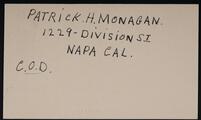 PATRICK.H.MONAGAN.
1229-DIVISION ST
NAPA CAL.
C.O.D.